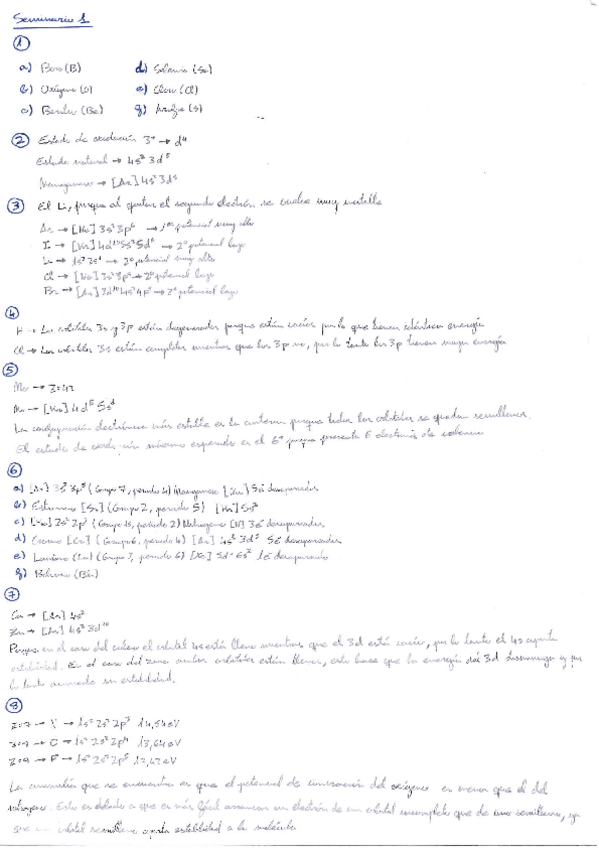 Seminario 1
1
a) Boro (B) d) Selenio (Se)
b) Oxígeno (O) e) Cloro (Cl)
c) Berilio (Be) f) Azufre (S)
2 Estado de oxidación 3+ → d4
Estado natural → 4s² 3d⁵
Manganeso → [Ar] 4s² 3d⁵
3 El Li, porque al quitar el segundo electrón se vuelve muy estable
Ar → [Ne] 3s² 3p⁶ → potencial muy alto
→ 2º potencial bajo
→ 2º potencial muy alto
Cl → [Ne] 3s² 3p⁵ → 2º potencial bajo
Br → [Ar] 3d¹⁰ 4s² 4p⁵ → 2º potencial bajo
4
H → Los orbitales 3s y 3p están degenerados porque están vacíos por lo que tienen idéntica energía
Cl → Los orbitales 3s están completos mientras que los 3p no, por lo tanto los 3p tienen mayor energía
5
Mo → Z=42
Mo → [Kr] 4d⁵ 5s¹
La configuración electrónica más estable es la anterior porque todos los orbitales se quedan semillenos.
El estado de máximo esperado es el 6+ porque presenta 6 electrones de valencia
6
a) (Grupo 7, periodo 4) manganeso 5e⁻ desapareados
b) Estroncio [Sr] (Grupo 2, periodo 5) [Kr] 5s²
c) 2s² 2p³ (Grupo 15, periodo 2) Nitrógeno [N] 3e⁻ desapareados
d) Cromo [Cr] (Grupo 6, periodo 4) [Ar] 3d⁵ desapareados
e) Lantano (La) (Grupo 3, periodo 6) [Xe] 5d¹ 6s² 1e⁻ desapareado
f)
7
→ [Ar] 4s²
Zn → [Ar] 4s² 3d¹⁰
Porque en el caso del calcio el orbital 4s está lleno mientras que el 3d está vacío, por lo tanto el 4s aporta
estabilidad. En el caso del zinc ambos orbitales están llenos, esto hace que la energía del 3d disminuya y por
lo tanto aumenta su estabilidad.
8
Z=7 → N → 1s² 2s² 2p³ 14,54 eV
→ O → 1s² 2s² 2p⁴ 13,64 eV
Z=9 → F → 1s² 2s² 2p⁵ 17,42 eV
La que se encuentra es que el potencial de ionización del oxígeno es menor que el del
nitrógeno. Esto es debido a que es más fácil arrancar un electrón de un orbital incompleto que de uno semilleno, ya
que un orbital semilleno aporta estabilidad a la molécula